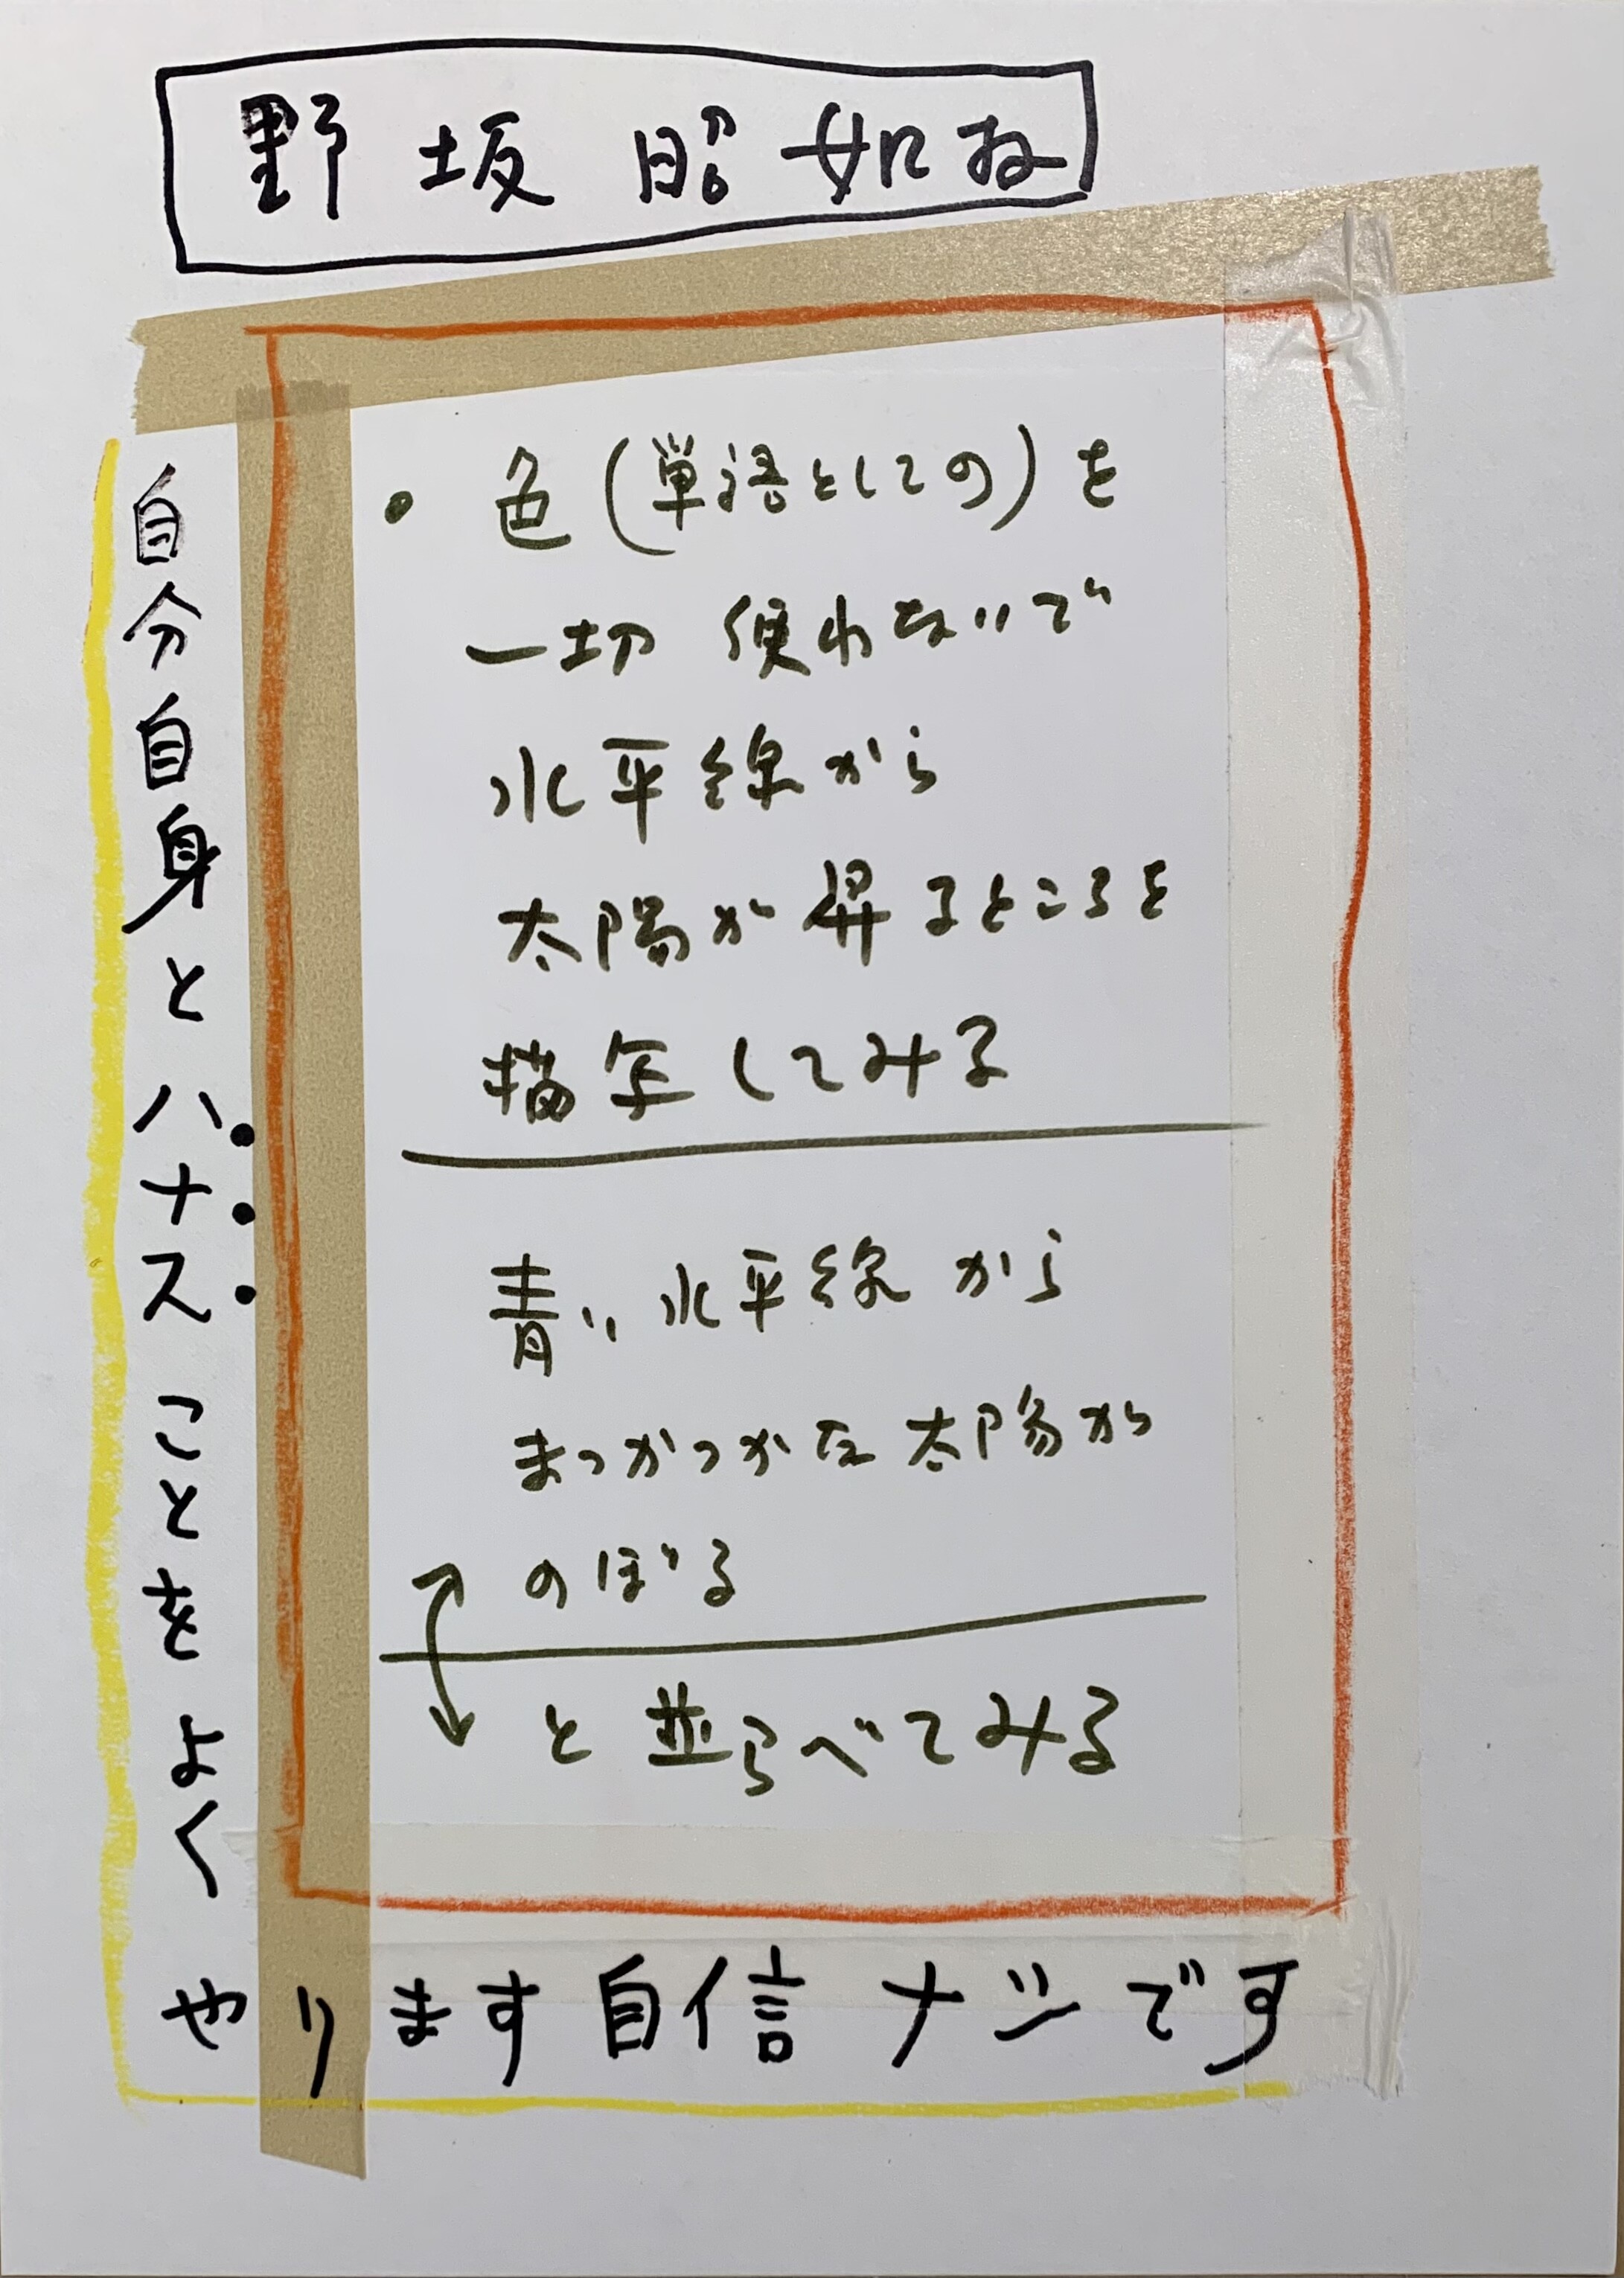 野坂昭如ね
・色(単語としての)を
一切使わないで
水平線から
太陽が昇るところを
描写してみる
青い水平線から
まっかっかな太陽が
のぼる
と並らべてみる
自分自身とハナスことをよく
やります自信ナシです